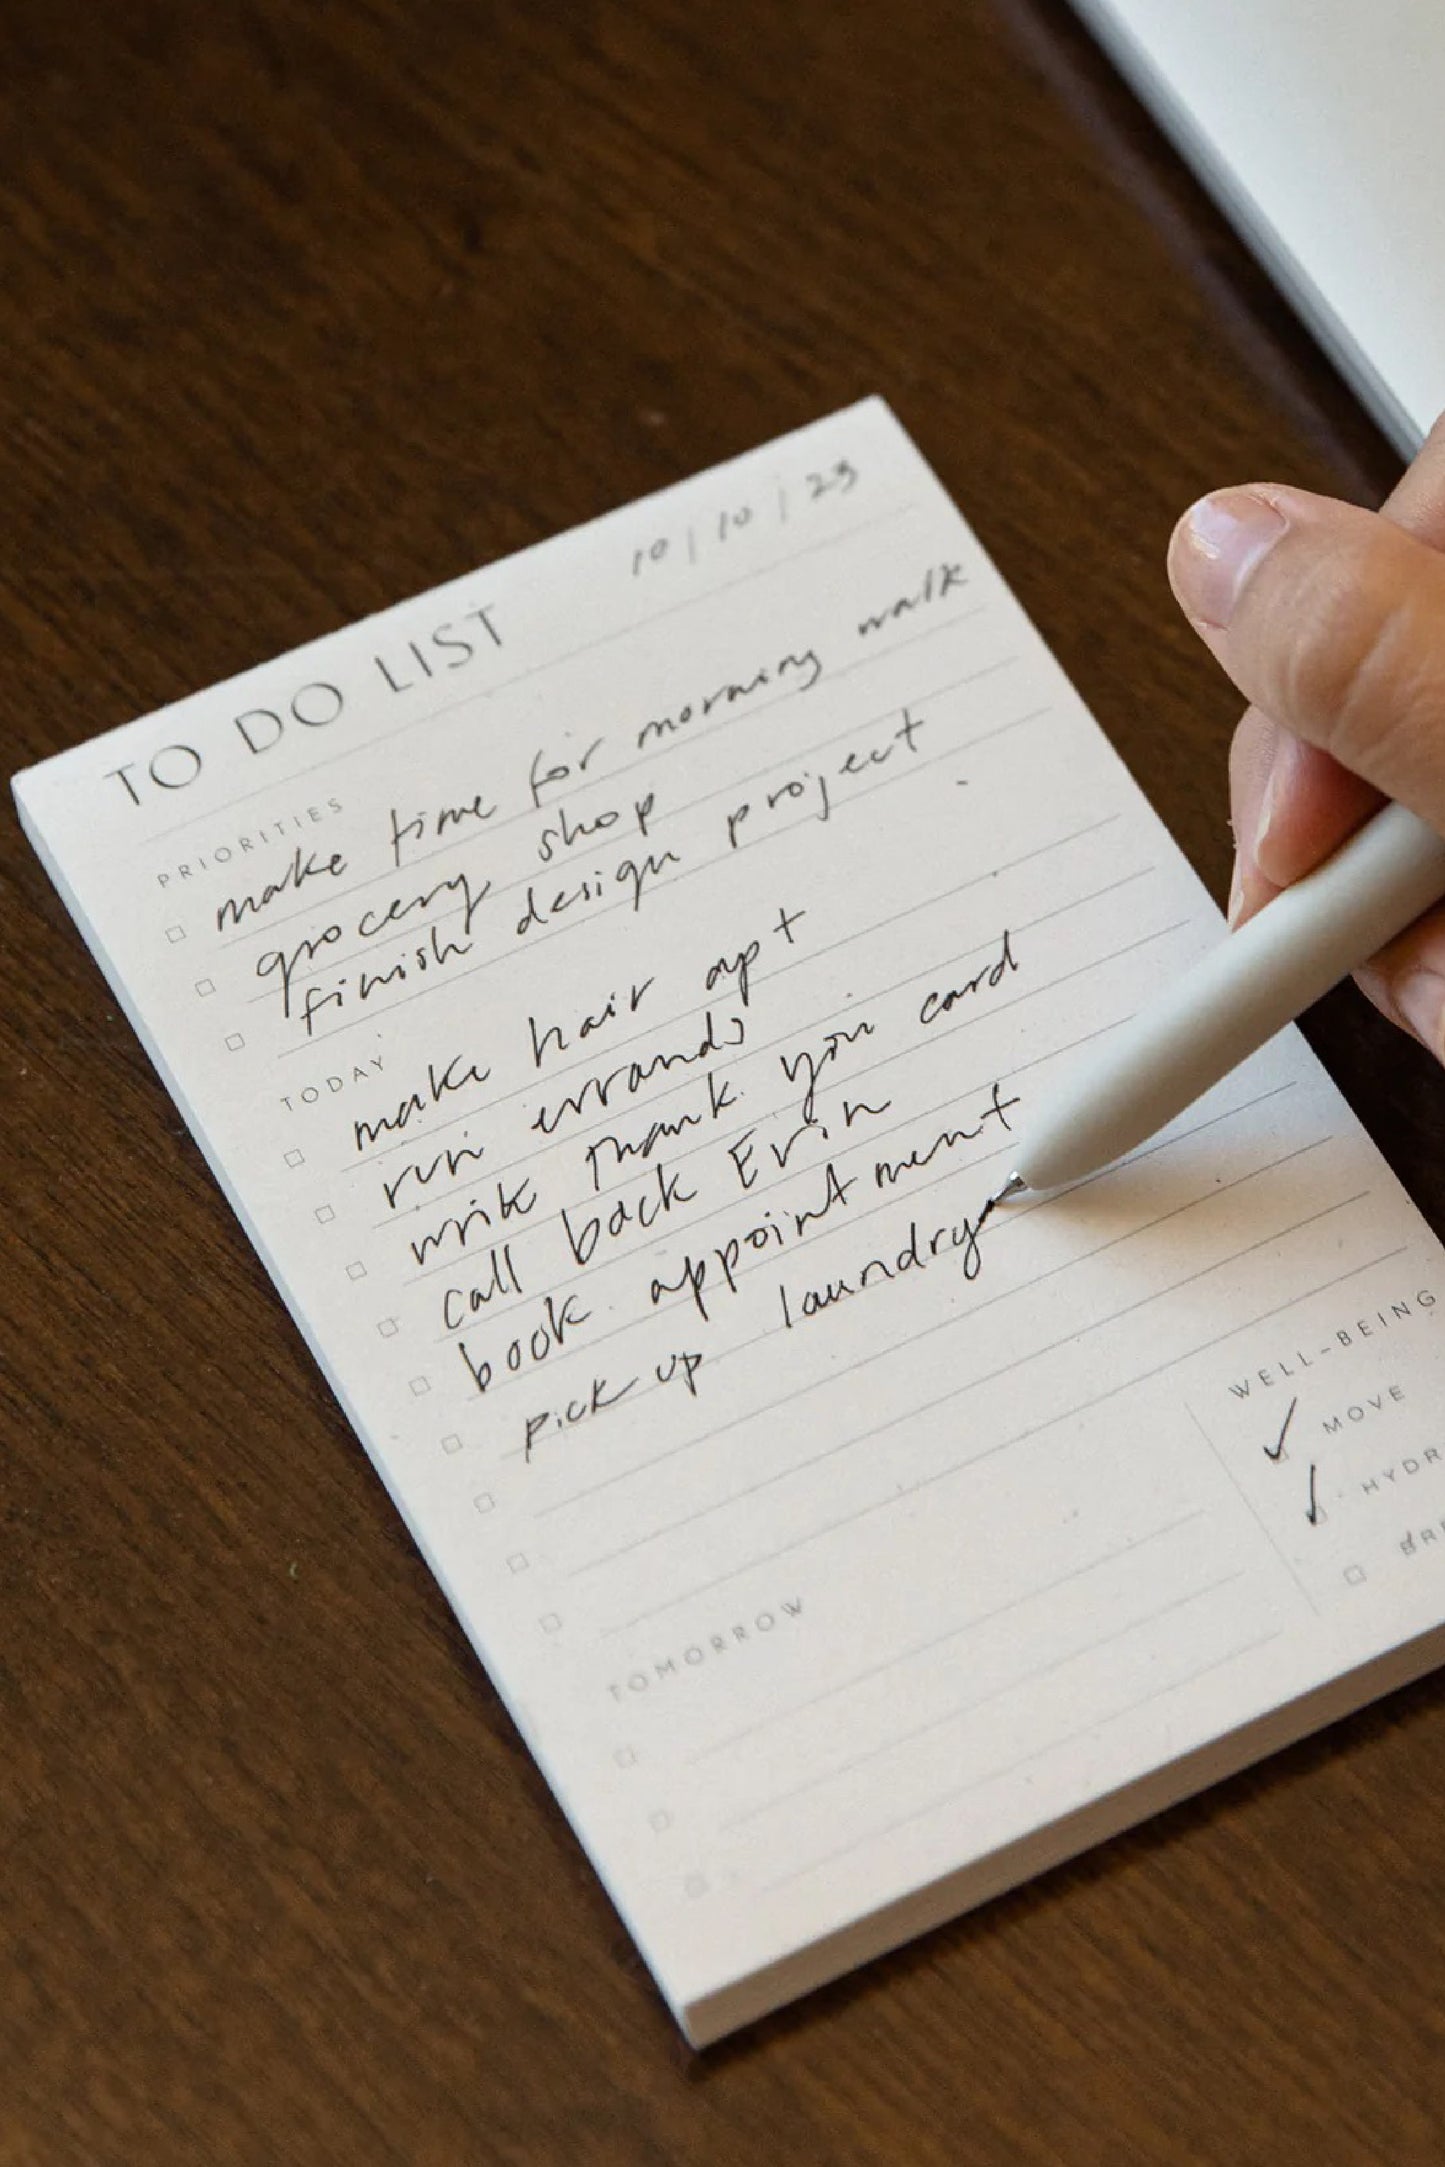 TO DO LIST
10/10/23
PRIORITIES
make time for morning walk
grocery shop
finish design project
TODAY
make hair apt
run errands
write thank you card
call back Erin
book appointment
pick up laundry
WELL-BEING
MOVE
TOMORROW